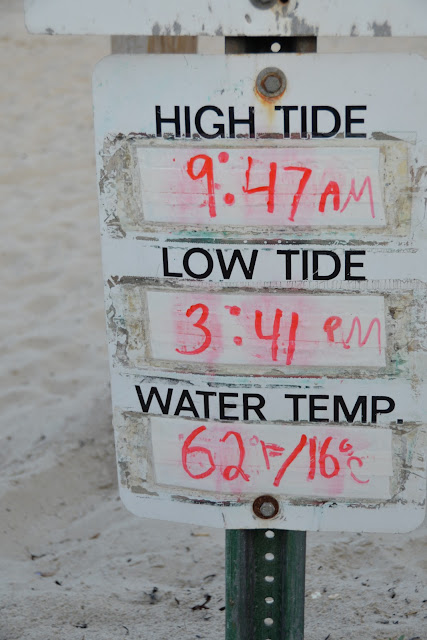 HIGH TIDE
9:47 AM
LOW TIDE
3:41 PM
WATER TEMP.
62°F/16°C